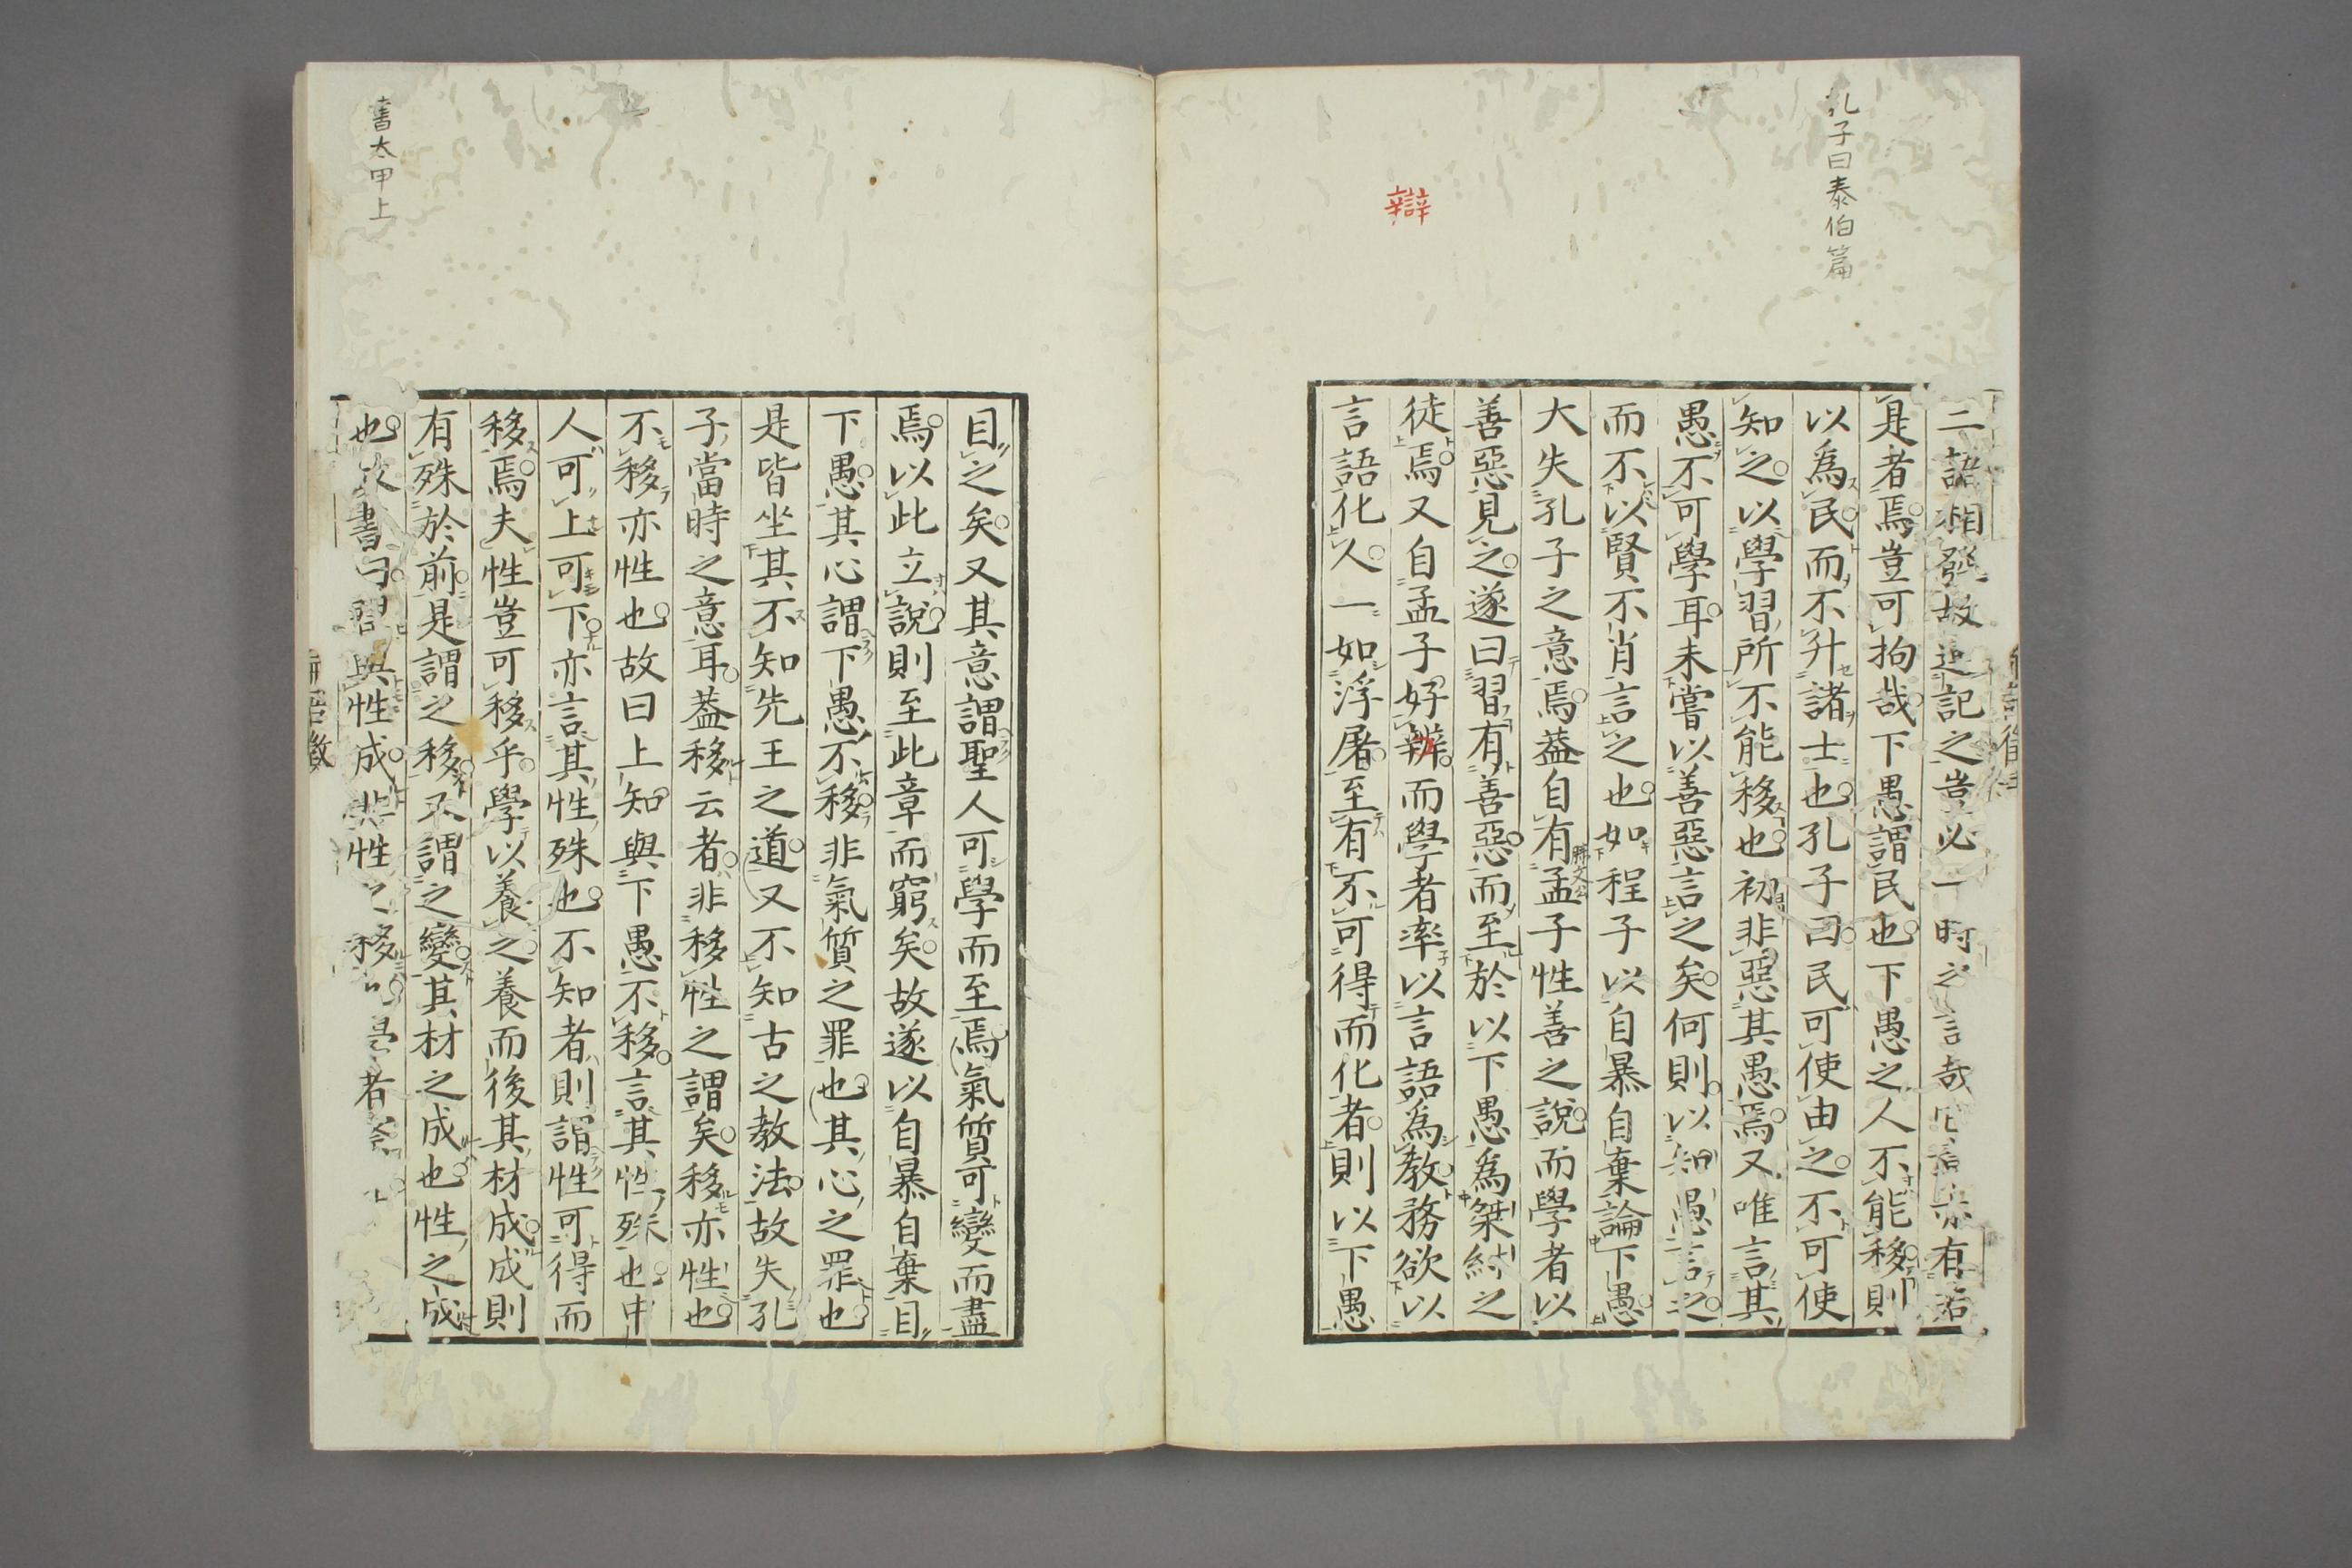 孔子曰泰伯篇
辯
二語相發故連記之豈必一時之言哉它音亦有若
是者焉豈可拘哉下愚謂民也下愚之人不能移則
以為民而不升諸士也孔子曰民可使由之不可使
知之以學習所不能移也初非惡其愚焉又唯言其
愚不可學耳未嘗以善惡言之矣何則以知愚言之
而不以賢不肖言之也如程子以自暴自棄論下愚
大失孔子之意焉蓋自有孟子性善之說而學者以
滕文公
善惡見之遂曰習有善惡而至於以下愚為桀紂之
徒焉又自孟子好辨而學者率以言語為教務欲以
言語化人一如浮屠至有不可得而化者則以下愚
書太甲上
目之矣又其意謂聖人可學而至焉氣質可變而盡
焉以此立說則至此章而窮矣故遂以自暴自棄目
下愚其心謂下愚不移非氣質之罪也其心之罪也
是皆坐其不知先王之道又不知古之教法故失孔
子當時之意耳蓋移云者非移性之謂矣移亦性也
不移亦性也故曰上知與下愚不移言其性殊也中
人可上可下亦言其性殊也不知者則謂性可得而
移焉夫性豈可移乎學以養之養而後其材成成則
有殊於前是謂之移又謂之變其材之成也性之成
也故書曰習與性成非性之移